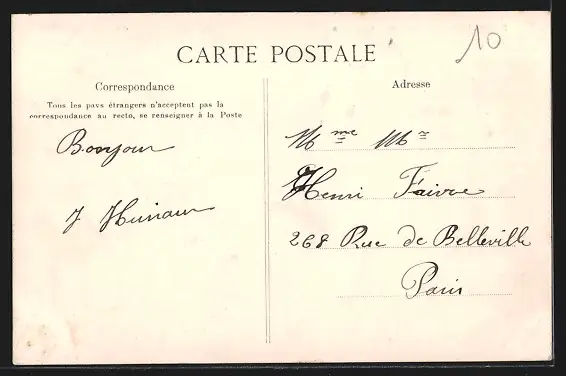 10
CARTE POSTALE
Correspondance
Tous les pays étrangers n'acceptent pas la
correspondance au recto, se renseigner à la Poste
Bonjour
J
Adresse
Mme Mr
Henri Faivre
268 Rue de Belleville
Paris